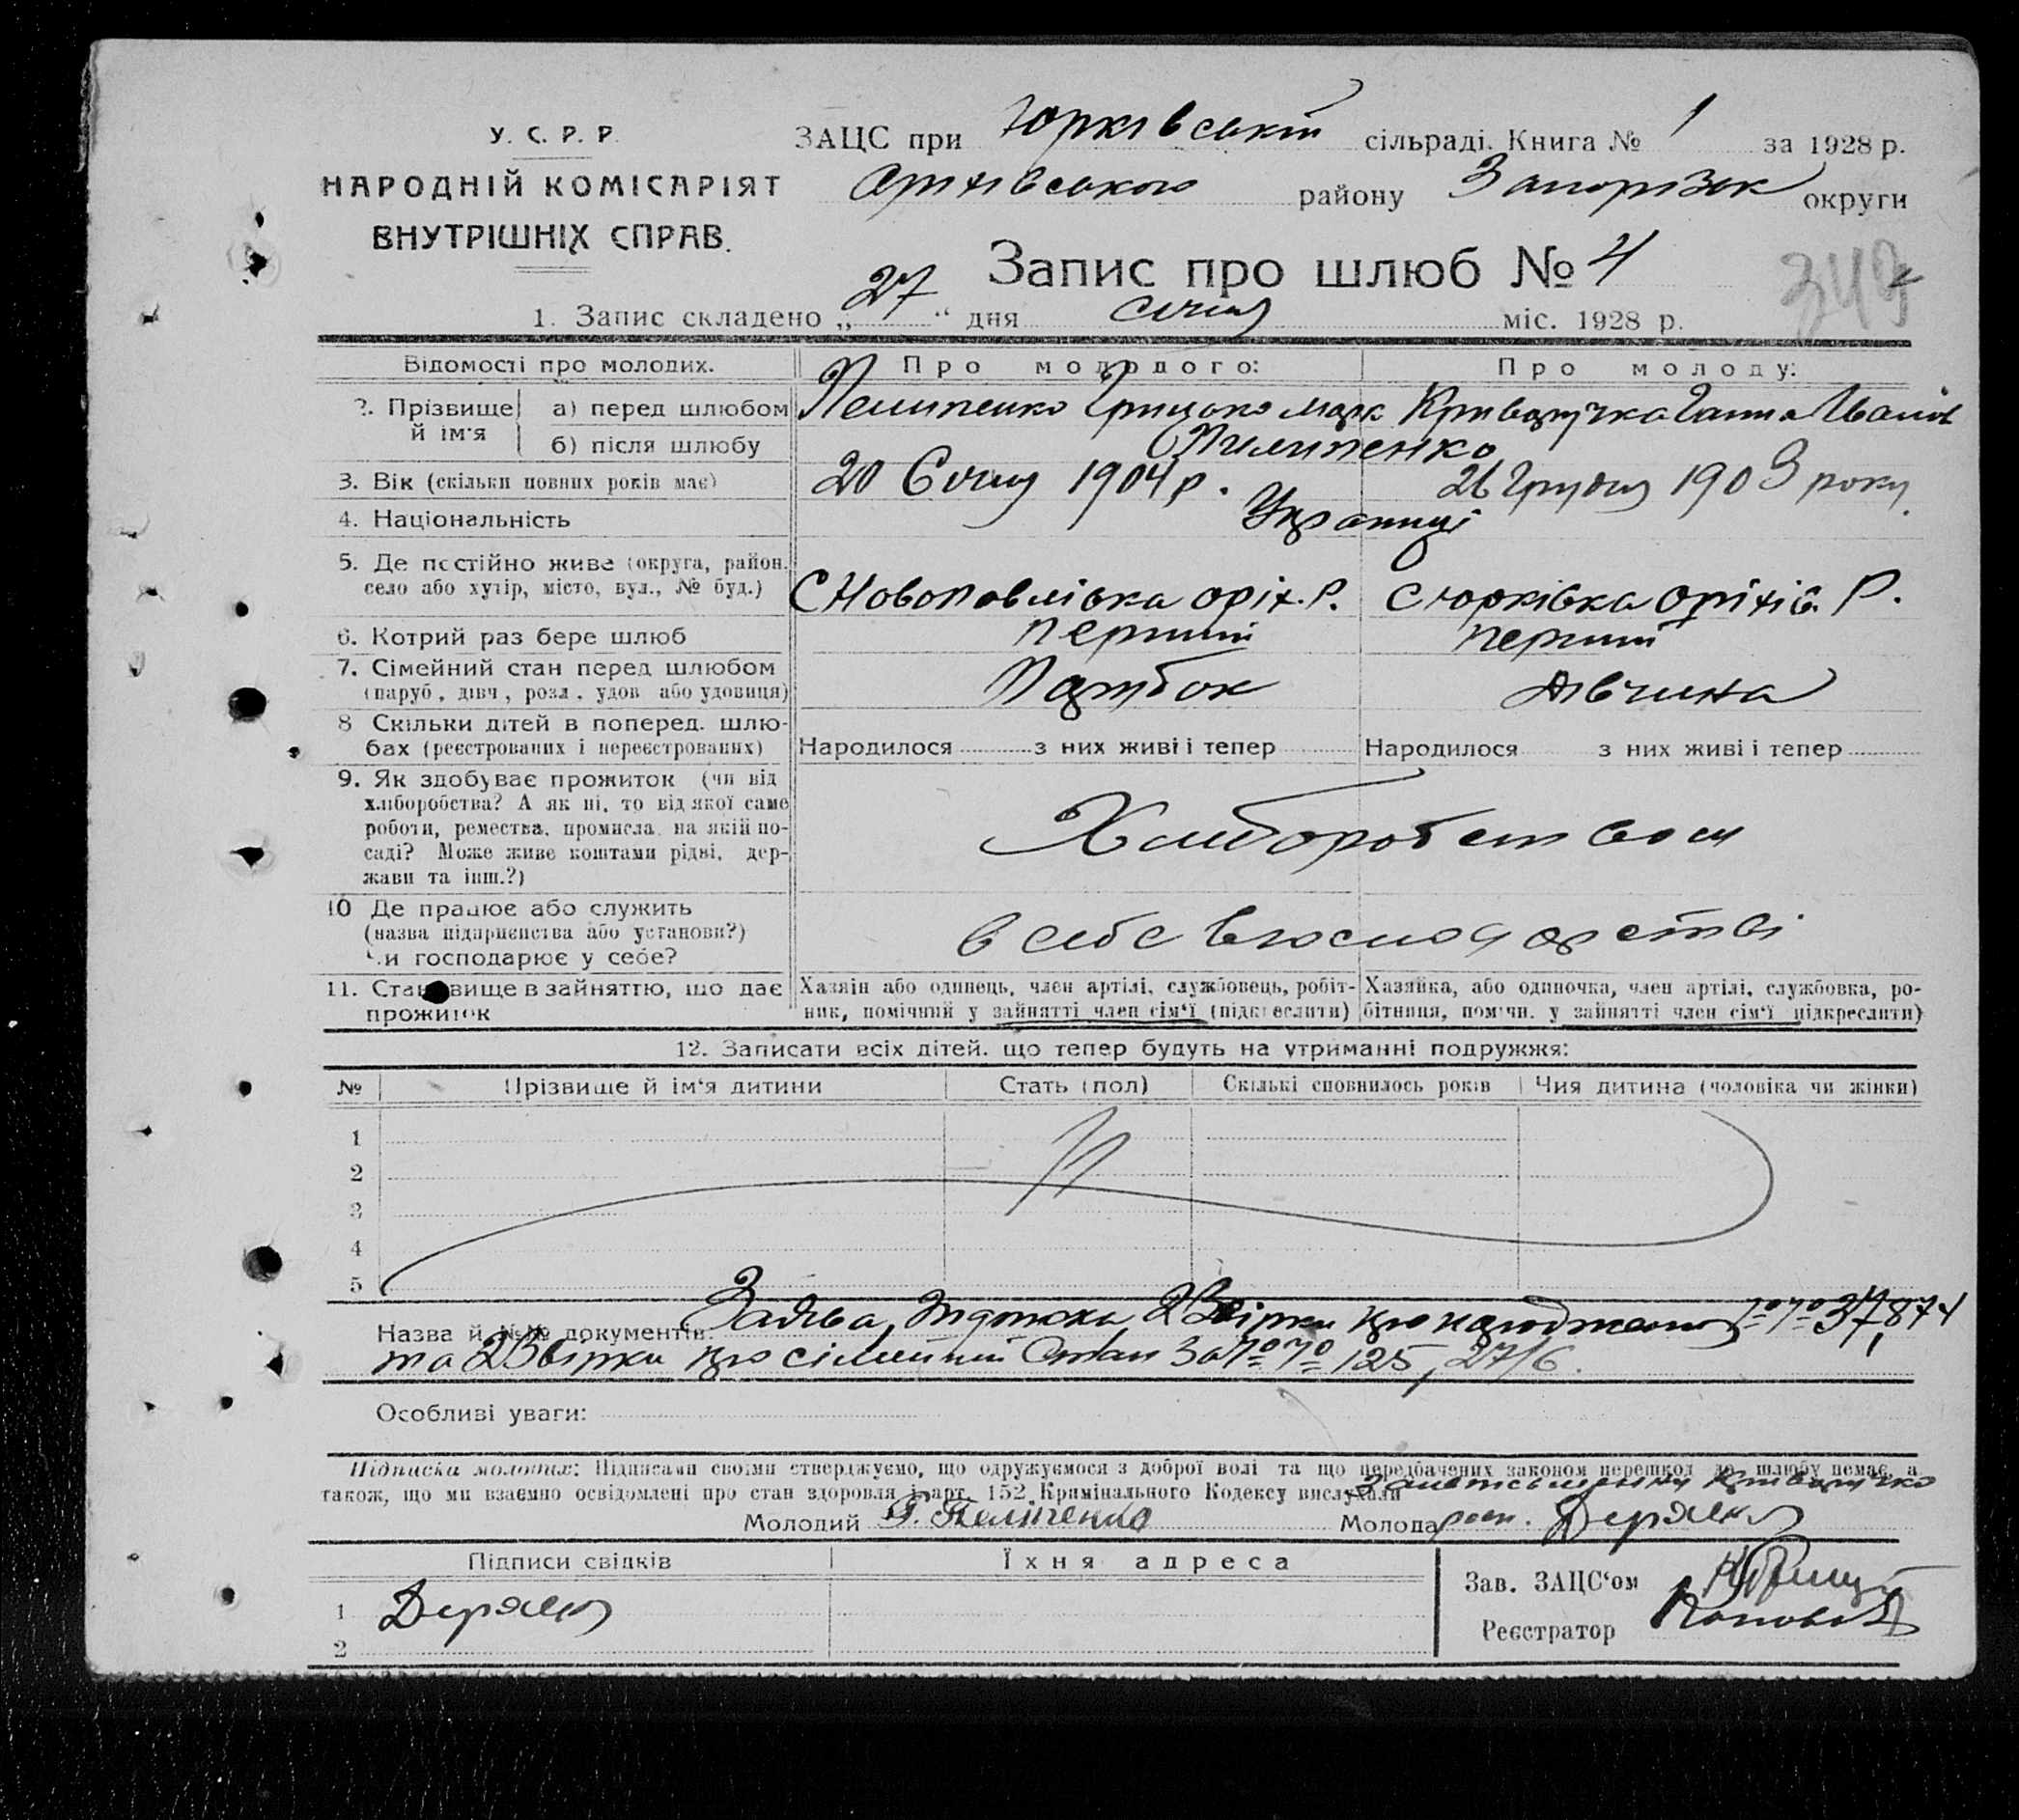 У. С. Р. Р.
НАРОДНІЙ КОМІСАРІЯТ
ВНУТРІШНІХ СПРАВ.
ЗАЦС при Юрківській сільраді. Книга № 1 за 1928 р.
Оріхівського району Запорізьк округи
Запис про шлюб № 4
349
1. Запис складено „27“ дня січня міс. 1928 р.
Відомості про молодих. Про молодого: Про молоду:
2. Прізвище й ім'я а) перед шлюбом Пелипенко Грицько Марк Криворучка Ганна Іванів
б) після шлюбу Пилипенко
3. Вік (скільки повних років має) 20 Січня 1904 р. 26 Грудня 1903 року.
4. Національність Українці
5. Де постійно живе (округа, район, село або хутір, місто, вул., № буд.) С Новопавлівка оріх. Р. С Юрківка оріхів. Р.
6. Котрий раз бере шлюб перший перший
7. Сімейний стан перед шлюбом (паруб., дівч., розл., удов. або удовиця) Парубок дівчина
8 Скільки дітей в поперед. шлюбах (реєстрованих і нереєстрованих) Народилося з них живі і тепер Народилося з них живі і тепер
9. Як здобуває прожиток (чи від
хліборобства? А як ні, то від якої саме
роботи, ремества, промисла, на якій по-
саді? Може живе коштами рідні, дер-
жави та інш.?)
Хліборобством
10 Де працює або служить
(назва підприємства або установи?)
Чи господарює у себе?
в себе в господарстві
11. Становище в зайняттю, що дає прожиток
Хазяїн або одинець, член артілі, службовець, робіт-
ник, помічний у зайнятті член сім'ї (підкреслити)
Хазяйка, або одиночка, член артілі, службовка, ро-
бітниця, помічн. у зайнятті член сім'ї підкреслити)
12. Записати всіх дітей, що тепер будуть на утриманні подружжя:
№ Прізвище й ім'я дитини Стать (пол) Скількі сповнилось років Чия дитина (чоловіка чи жінки)
1
2
3
4
5
Назва й №№ документів: Заява, 2 Звірки про народження №№ 37, 874
та 2 Звірки про сімейний Стан За №№ 125, 27/6.
Особливі уваги:
Підписка молодих: Підписами своїми стверджуємо, що одружуємося з доброї волі та що передбачених законом перешкод до шлюбу немає, а
також, що ми взаємно освідомлені про стан здоровля і арт. 152 Кримінального Кодексу вислухали
Молодий Г. Пелипенко Молода
Підписи свідків Їхня адреса
1
2
Зав. ЗАЦС'ом
Реєстратор